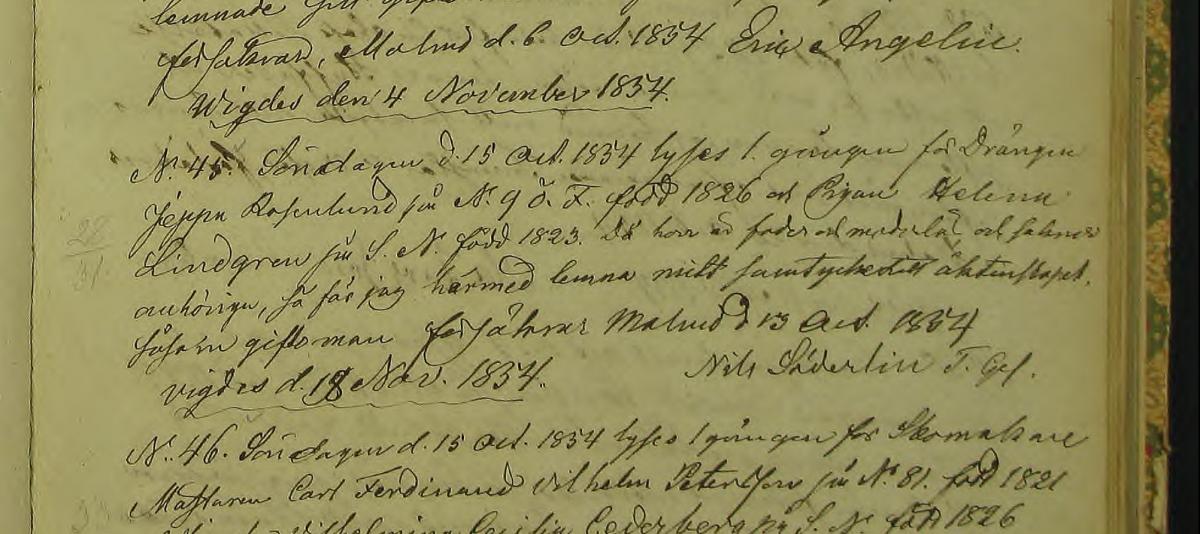 lemnade
försäkrar, Malmö d. 6 Oct. 1854 Eric Angelin.
Wigdes den 4 November 1854.
N. 45. Söndagen d. 15 Oct. 1854 lyses 1. gången för Drängen
Jeppa Rosenlund på N. 9 ö. F. född 1826 och Pigan Helena
28
Lindgren på S. N. född 1823. Då hon är fader och moderlös och saknar
31
anhöriga, så får jag härmed lemna mitt samtycke till äktenskapet,
såsom giftoman försäkrar Malmö d 13 Oct. 1854
Nils Söderlin T. Gef.
vigdes d. 18 Nov. 1854.
N. 46. Söndagen d. 15 Oct. 1854 lyses 1 gången för Skomakare
Mästaren Carl Ferdinand Vilhelm Petersson på N. 81. född 1821
Wilhelmina Cecilia Cederberg på S. N. född 1826